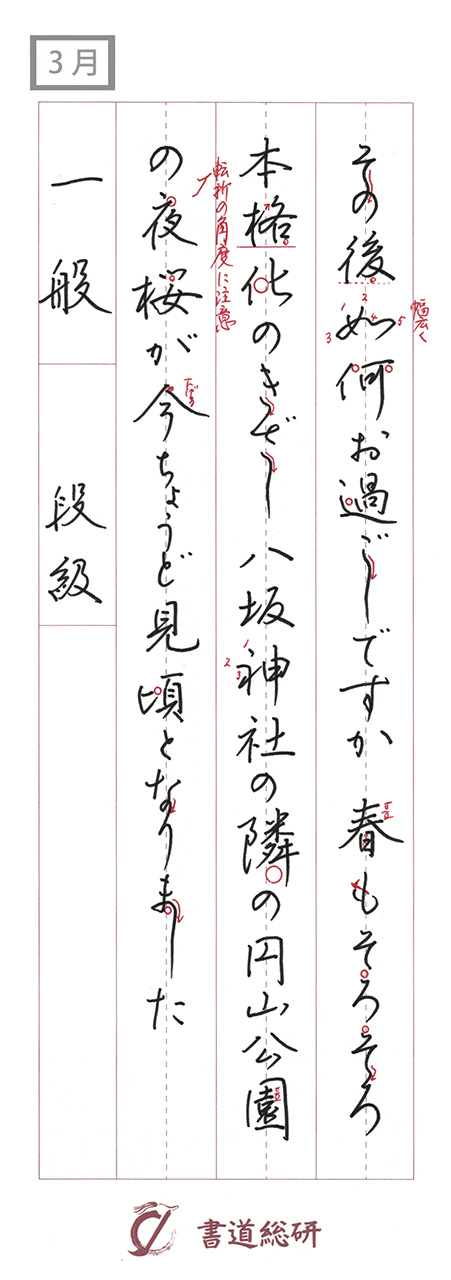 3月
その後如何お過ごしですか 春もそろそろ
幅広く
1 2 3 4 5
本格化のきざし 八坂神社の隣の円山公園
転折の角度に注意
1 2 3
の夜桜が今ちょうど見頃となりました
一般
段級
書道総研